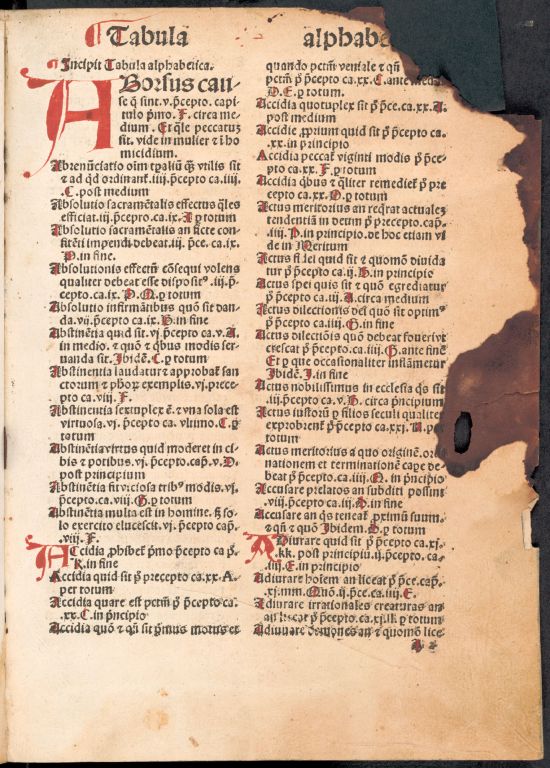 Tabula alphabe
Incipit Tabula alphabetica.
ABorsus cau-
se q̄ sint. v. p̄cepto. capi-
tulo p̄mo. F. circa me-
dium. Et q̄le peccatuȝ
sit. vide in mulier ⁊ i ho
micidium.
Abrenūciatio oīm tꝑaliū qȝ vtilis sit
⁊ ad qd ordinat. iiij. p̄cepto ca. iiij.
C. post medium
Absolutio sacramētalis effectus q̄les
efficiat. iij. p̄cepto. ca. ix. I. y totum
Absolutio sacramentalis an ficte con-
fitēti impendi debeat. iij. p̄ce. ca. ix.
P. in fine.
Absolutionis effectū cōsequi volens
qualiter debeat esse disposit⁹. iij. p̄-
cepto. ca. ix. P. Q. y totum
Absolutio infirmātibus quō sit dan-
da. vij. p̄cepto ca. ix. D. in fine
Abstinētia quid sit. vj. p̄cepto ca. v. A.
in medio. ⁊ quō ⁊ q̄bus modis ser-
uanda sit. Ibidē. C. y totum
Abstinentia laudatur ⁊ approbat̄ san
ctorum ⁊ ph̄oꝝ exemplis. vj. prece-
pto ca. viij. F.
Abstinentia sextuplex ē. ⁊ vna sola est
virtuosa. vj. p̄cepto ca. vltimo. C. y
totum
Abstinētia virtus quid moderet in ci-
bis ⁊ potibus. vj. p̄cepto. cap̄. v. D.
post principium
Abstinētia fit viciosa trib⁹ modis. vj.
p̄cepto. ca. viij. G. y totum
Abstinētia multa est in homine. sȝ so-
lo exercito elucescit. vj. p̄cepto cap̄.
viij. F.
Accidia ꝓhibet̄ p̄mo p̄cepto ca p̄.
K. in fine
Accidia quid sit p̄ precepto ca. xx. A.
per totum
Accidia quare est pctm̄ p̄ p̄cepto ca.
xx. C. in p̄ncipio
Accidia quō ⁊ qn̄ sit p̄mus motus et
quando pctm̄ veniale ⁊ qn̄
pctm̄ p̄ p̄cepto ca. xx. C. ante medi
D. E. y totum.
Accidia quotuplex sit p̄ p̄ce. ca. xx. A.
post medium
Accidie ꝓprium quid sit p̄ p̄cepto ca.
xx. in principio
Accidia peccat̄ viginti modis p̄ p̄ce-
pto ca. xx. F. y totum
Accidia q̄bus ⁊ q̄liter remediet̄ p̄ pre
cepto ca. xx. O. y totum
Actus meritorius an reqrat actualeȝ
tendentiā in deum p̄ precepto. cap̄.
iiij. P. in principio. de hoc etiam vi
de in Meritum
Actus fidei quid sit ⁊ quomō diuida
tur p̄ p̄cepto ca. ij. D. in principio
Actus spei quis sit ⁊ quō egrediatur
p̄ p̄cepto ca. iij. A. circa medium
Actus dilectionis dei quō sit optim⁹
p̄ p̄cepto ca. iiij. G. in fine
Actus dilectiōis quō debeat foueri vt
crescat p̄ p̄cepto ca. iiij. G. ante finē
Et y que occasionaliter inflāmetur
Ibidē. I. in fine
Actus nobilissimus in ecclesia q̄s sit
iij. p̄cepto ca. v. D. circa p̄ncipium
Actus iustoꝝ y filios seculi qualiter
exprobrent̄ p̄ p̄cepto ca. xxj. A. per
totum
Actus meritorius a quo originē. ordi
nationem ⁊ terminationē cape de-
beat p̄ p̄cepto ca. iiij. N. in p̄ncipio
Accusare prelatos an subditi possint
viij. p̄cepto ca. iij. D. in fine
Accusare an q̄s teneat̄ ꝓximū suum.
⁊ qn̄ ⁊ quō Ibidem. D. y totum
Adiurare quid sit p̄ p̄cepto ca. xj.
kk. post principiū ij. p̄cepto. ca.
iiij. E. in principio
Adiurare hoīem an liceat p̄ p̄ce. cap̄.
xj. mm. Quō. ij. p̄ce. ca. iiij. E.
Adiurare irrationales creaturas an
an liceat p̄ p̄cepto ca. xj. ll. y totum
Adiurare demones an ⁊ quomō lice